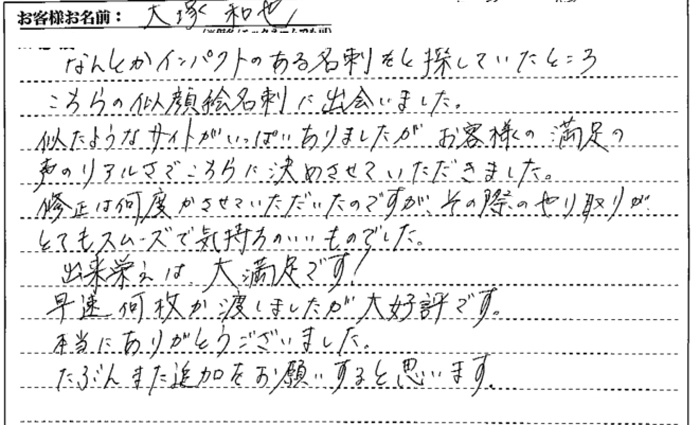 お客様お名前： 大塚 和也
なんとかインパクトのある名刺をと探していたところ
こちらの似顔絵名刺に出会いました。
似たようなサイトがいっぱいありましたがお客様の満足の
声のリアルさでこちらに決めさせていただきました。
修正は何度かさせていただいたのですが、その際のやり取りが
とてもスムーズで気持ちのいいものでした。
出来栄えは、大満足です！
早速何枚か渡しましたが大好評です。
本当にありがとうございました。
たぶんまた追加をお願いすると思います。